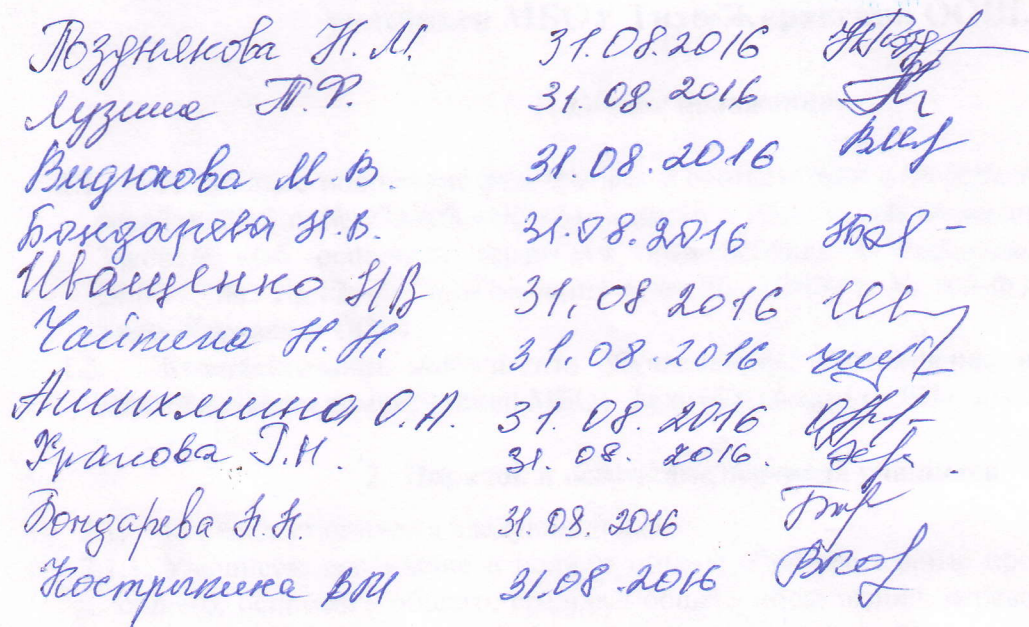 Позднякова Н.М. 31.08.2016
Лузина Т.Ф. 31.08.2016
Видюкова М.В. 31.08.2016
Бондарева Н.В. 31.08.2016
Иващенко Н В 31.08 2016
Чайкина Н.Н. 31.08.2016
Анихмина О.А. 31.08.2016
Храмова Г.Н. 31 08. 2016
Бондарева Н.Н. 31.08.2016
Кострыкина ВМ 31.08.2016